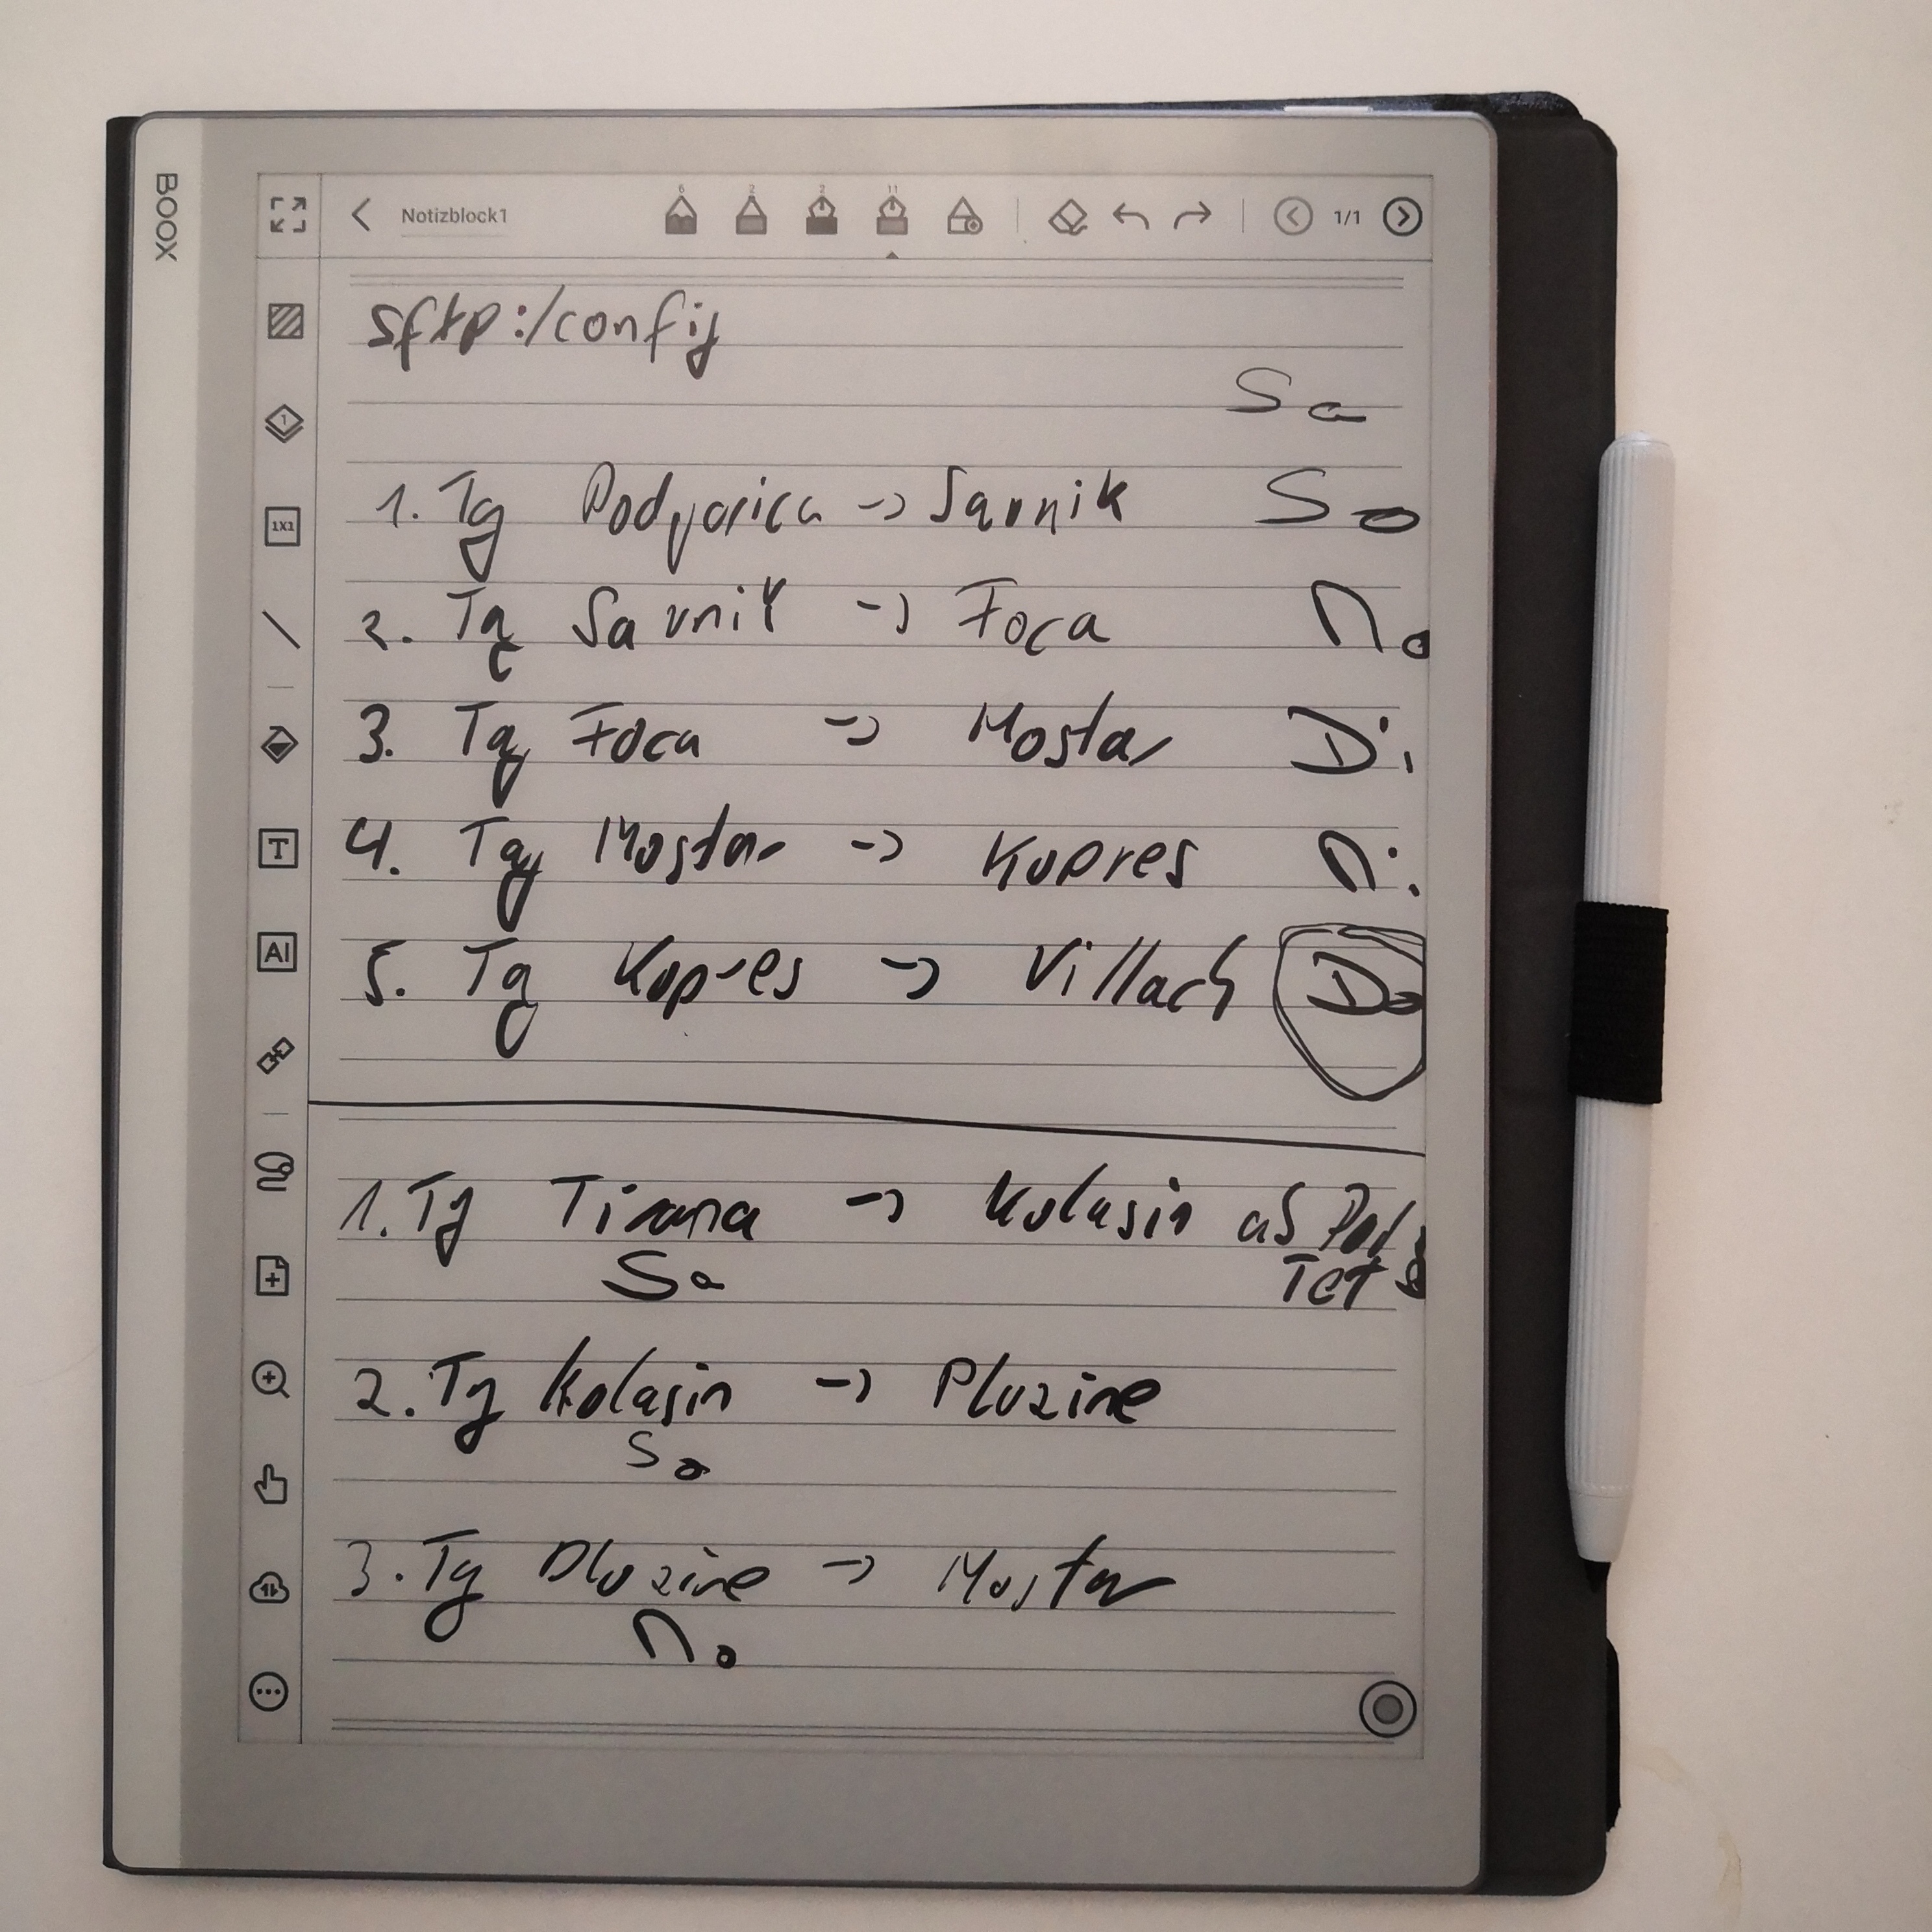 BOOX
Notizblock1
6 2 2 11
1/1
sftp:/config
Sa
1. Tg Podgorica -> Savnik So
2. Tg Savnik -> Foca Mo
3. Tg Foca -> Mostar Di
4. Tg Mostar -> Kupres Mi
5. Tg Kupres -> Villach Do
1. Tg Tirana -> Kolasin ab Pod
Sa
2. Tg Kolasin -> Pluzine
So
3. Tg Pluzine -> Mostar
Mo
1
1X1
T
AI